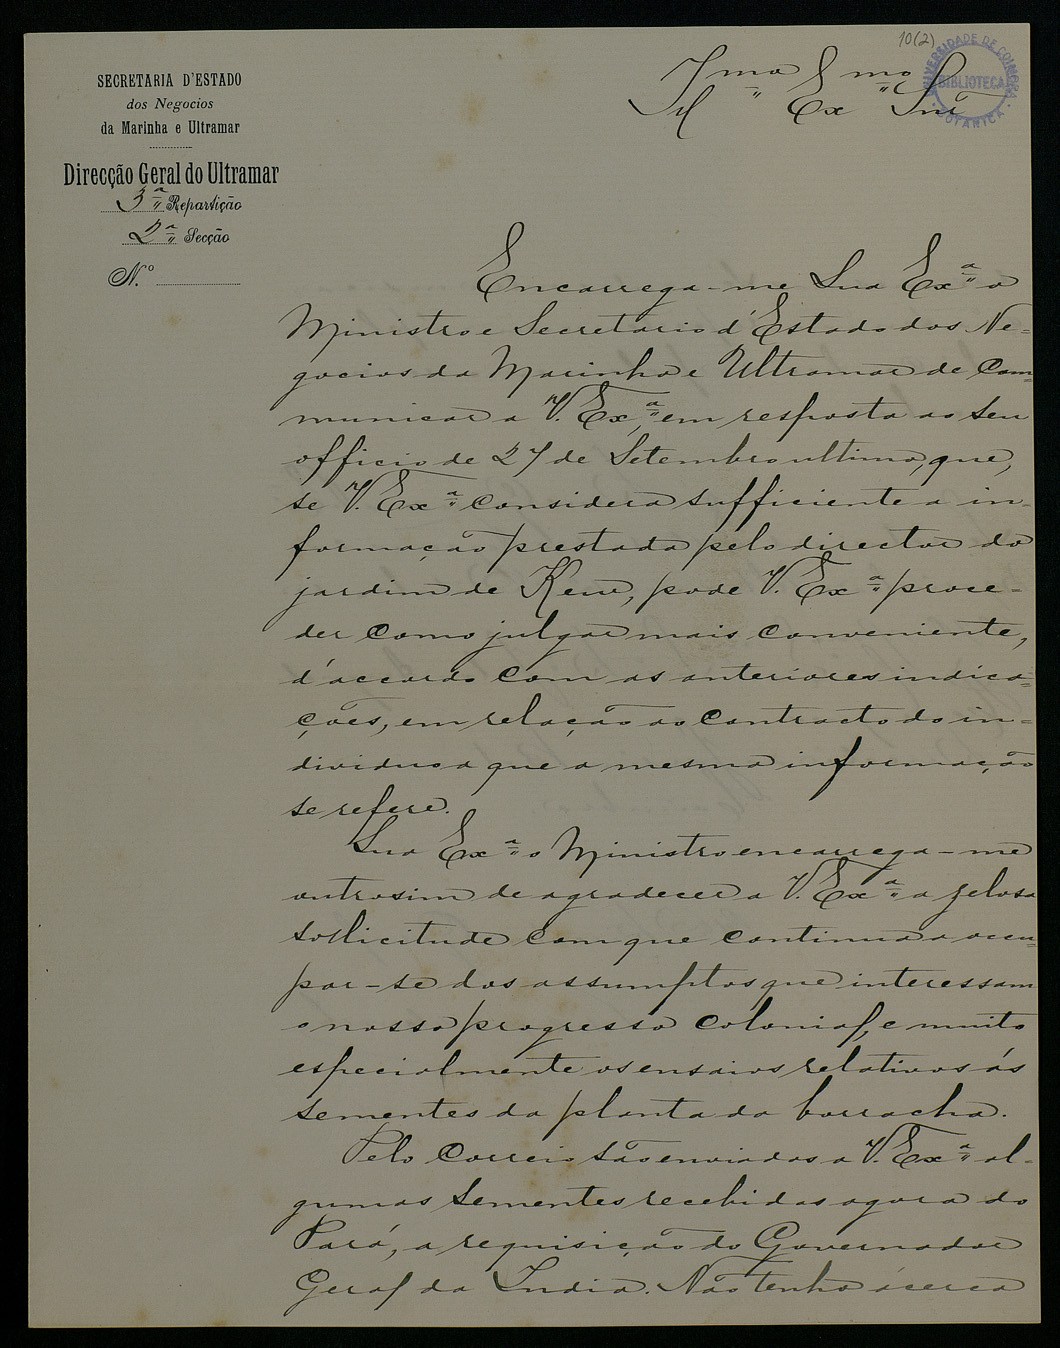 10(2)
UNIVERSIDADE DE COIMBRA
BIBLIOTECA
BOTANICA
SECRETARIA D'ESTADO
dos Negocios
da Marinha e Ultramar
Direcção Geral do Ultramar
3ª Repartição
2ª Secção
N.º
Illmo Exmo Snr
Encarrega-me Sua Exª o
Ministro e Secretario d'Estado dos Ne=
gocios da Marinha e Ultramar de Com=
municar a V. Exª, em resposta ao seu
officio de 27 de Setembro ultimo, que,
se V. Exª considera sufficiente a in-
formação prestada pelo director do
jardim de Kew, pode V. Exª proce-
der como julgar mais conveniente,
d'accordo com as anteriores indica=
ções, em relação ao contracto do in=
dividuo a que a mesma informação
se refere.
Sua Exª o Ministro encarrega-me
outrosim de agradecer a V. Exª a zelosa
sollicitude com que continua a occu=
par-se dos assumptos que interessam
o nosso progresso colonial, e muito
especialmente os ensaios relativos ás
sementes da planta da borracha.
Pelo correio são enviadas a V. Exª al-
gumas sementes recebidas agora do
Pará, a requisição do Governador
Geral da India. Não tenho ácerca